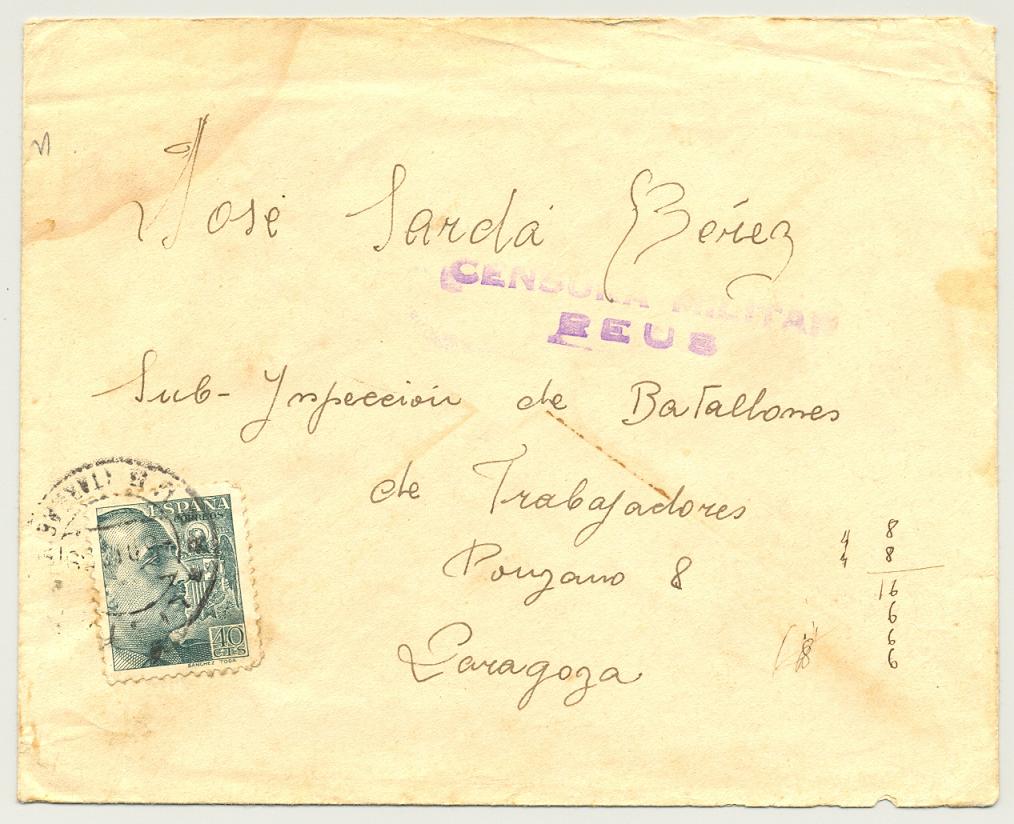 José Sardá Pérez
CENSURA MILITAR
REUS
Sub-Inspección de Batallones
de Trabajadores
Ponzano 8
Zaragoza
ESPAÑA
CORREOS
40
CTS
SANCHEZ TODA
4 8
4 8
16
6
6
6